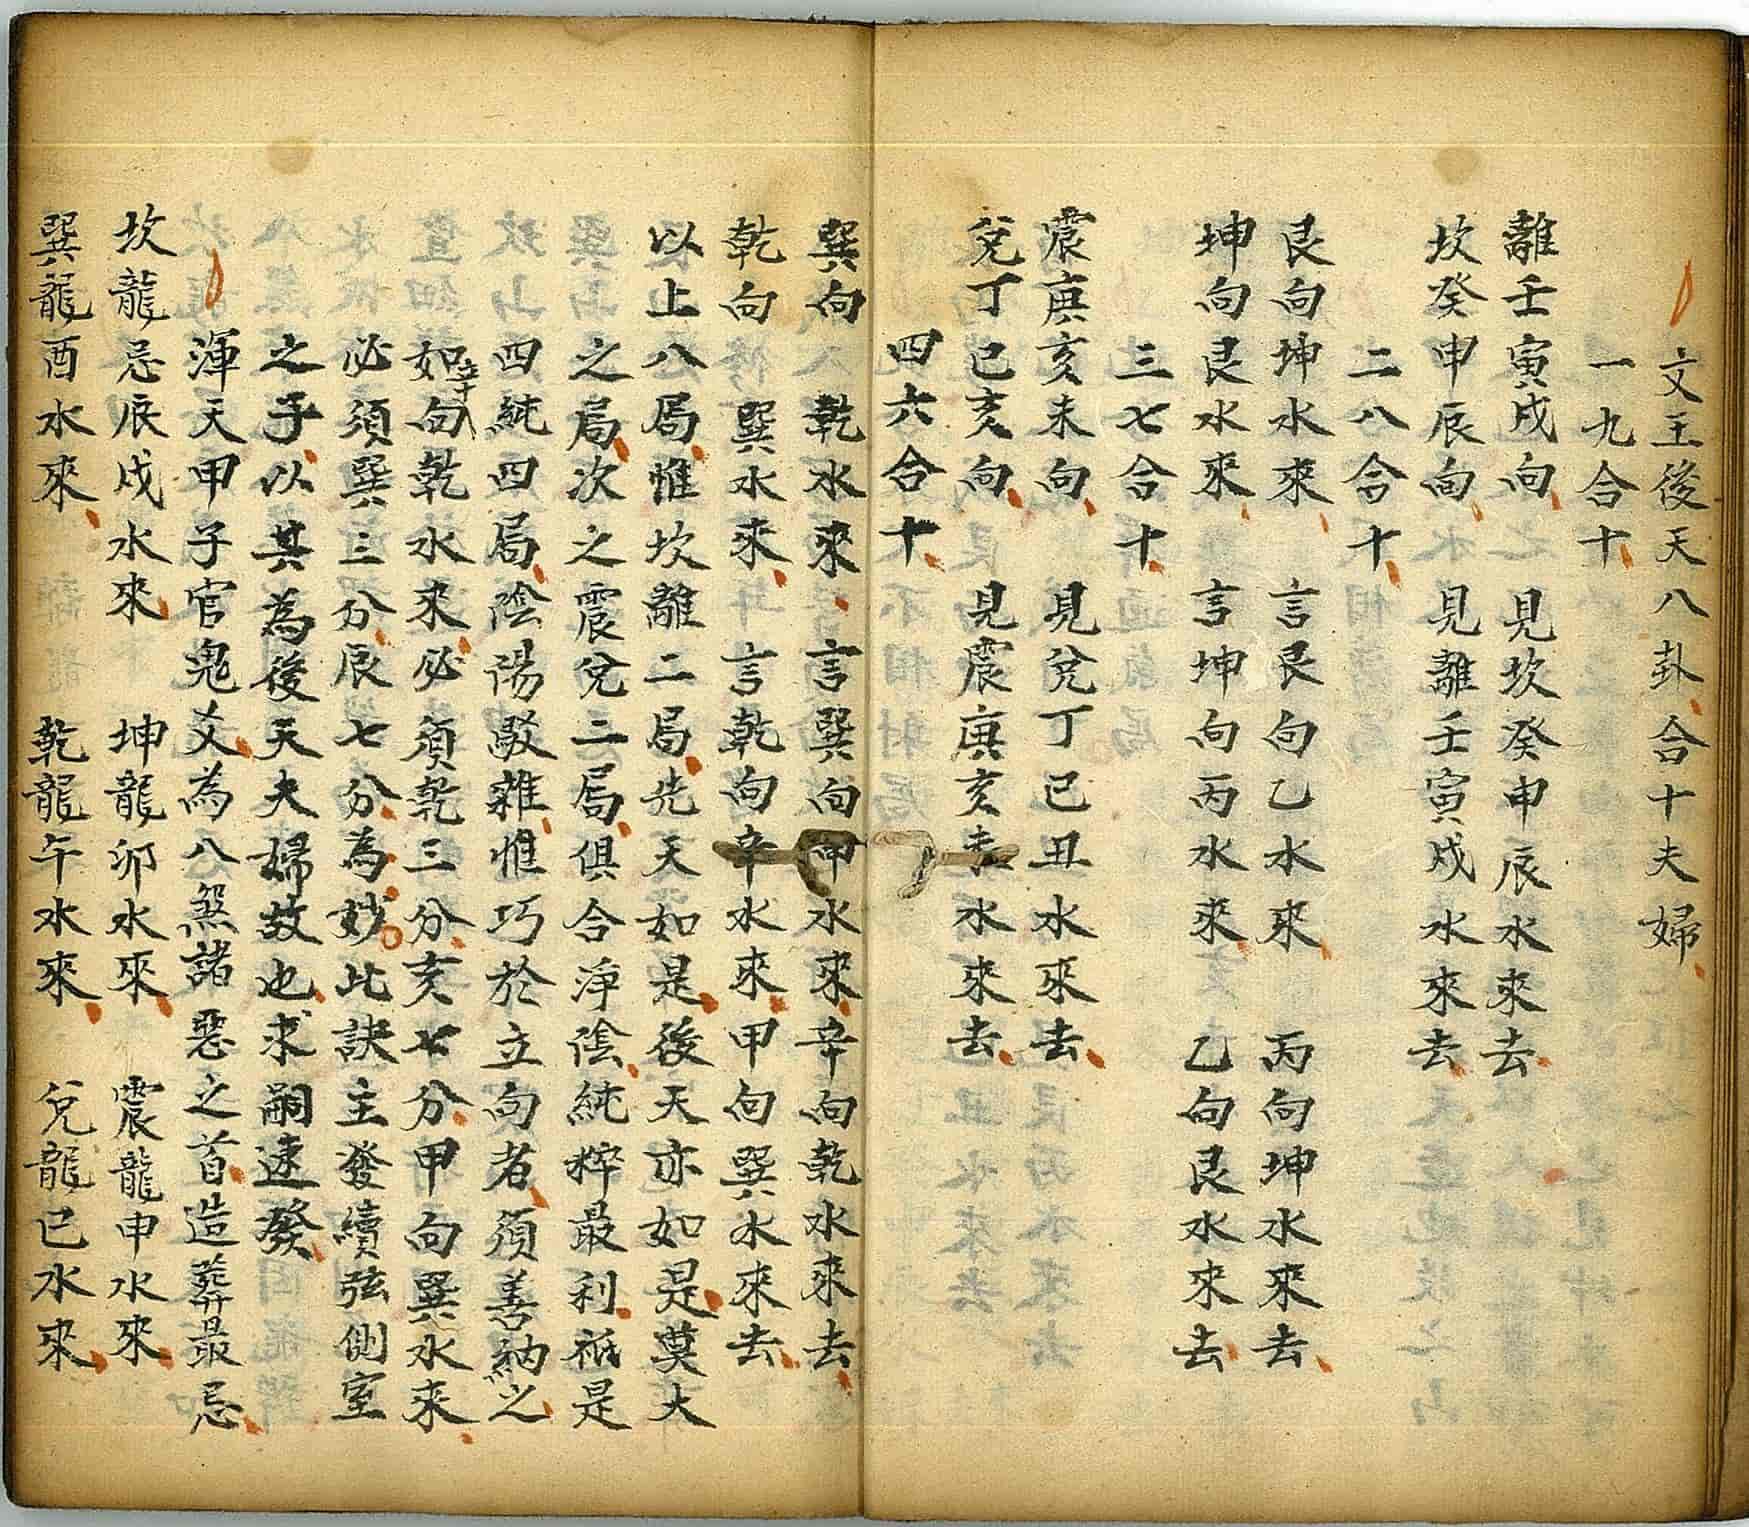 文王後天八卦合十夫婦
一九合十
離壬寅戌向 見坎癸申辰水來去
坎癸申辰向 見離壬寅戌水來去
二八合十
艮向坤水來 言艮向乙水來 丙向坤水來去
坤向艮水來 言坤向丙水來 乙向艮水來去
三七合十
震庚亥未向 見兌丁巳丑水來去
兌丁巳亥向 見震庚亥未水來去
四六合十
巽向 乾水來 言巽向甲水來辛向乾水來去
乾向 巽水來 言乾向辛水來甲向巽水來去
以上八局惟坎離二局先天如是後天亦如是莫大
之局次之震兌二局俱合淨陰純粹最利祗是
四純四局陰陽駁雜惟巧於立向者須善納之
如向乾水來必須乾三分亥七分甲向巽水來
必須巽三分辰七分為妙此訣主發續弦側室
之子以其為後天夫婦故也求嗣速發
渾天甲子官鬼爻為八煞諸惡之首造葬最忌
坎龍忌辰戌水來 坤龍卯水來 震龍申水來
巽龍酉水來 乾龍午水來 兌龍巳水來